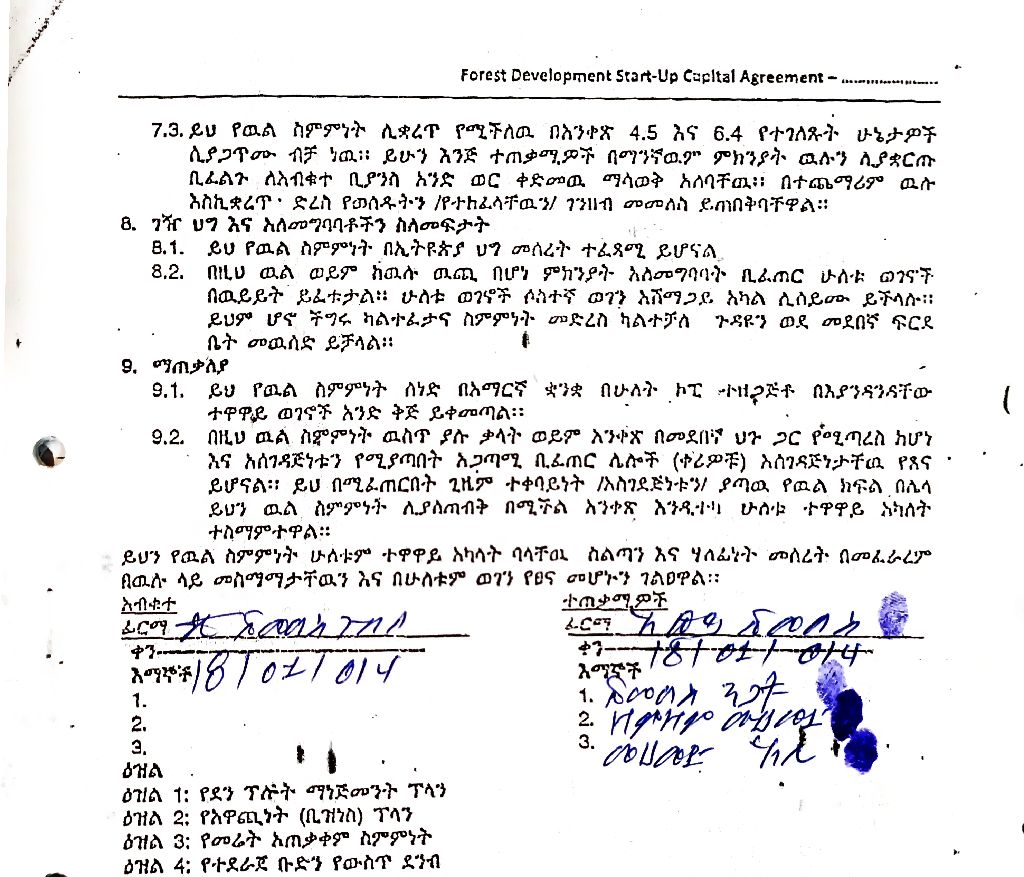 Forest Development Start-Up Capital Agreement – ......................
7.3. ይህ የዉል ስምምነት ሊቋረጥ የሚችለዉ በአንቀጽ 4.5 እና 6.4 የተገለጹት ሁኔታዎች
ሲያጋጥሙ ብቻ ነዉ። ይሁን እንጅ ተጠቃሚዎች በማንኛዉም ምክንያት ዉሉን ሊያቋርጡ
ቢፈልጉ ለእብቁተ ቢያንስ አንድ ወር ቀድመዉ ማሳወቅ አለባቸዉ። በተጨማሪም ዉሉ
እስኪቋረጥ ድረስ የወሰዱትን /የተከፈላቸዉን/ ገንዘብ መመለስ ይጠበቅባቸዋል።
8. ገዥ ህግ እና አለመግባባቶችን ስለመፍታት
8.1. ይህ የዉል ስምምነት በኢትዩጵያ ህግ መሰረት ተፈጻሚ ይሆናል
8.2. በዚህ ዉል ወይም ከዉሉ ዉጪ በሆነ ምክንያት አለመግባባት ቢፈጠር ሁለቱ ወገኖች
በዉይይት ይፈቱታል። ሁለቱ ወገኖች ሶስተኛ ወገን አሸማጋይ አካል ሊሰይሙ ይችላሉ።
ይህም ሆኖ ችግሩ ካልተፈታና ስምምነት መድረስ ካልተቻለ ጉዳዩን ወደ መደበኛ ፍርደ
ቤት መዉሰድ ይቻላል።
9. ማጠቃለያ
9.1. ይህ የዉል ስምምነት ሰነድ በአማርኛ ቋንቋ በሁለት ኮፒ ተዘጋጅቶ በእያንዳንዳቸው
ተዋዋይ ወገኖች አንድ ቅጅ ይቀመጣል።
9.2. በዚህ ዉል ስምምነት ዉስጥ ያሉ ቃላት ወይም አንቀጽ በመደበኛ ህጉ ጋር የሚጣረስ ከሆነ
እና አስገዳጅነቱን የሚያጣበት አጋጣሚ ቢፈጠር ሌሎች (ቀሪዎቹ) አስገዳጅነታቸዉ የጸና
ይሆናል። ይህ በሚፈጠርበት ጊዜም ተቀባይነት /አስገደጅነቱን/ ያጣዉ የዉል ክፍል በሌላ
ይህን ዉል ስምምነት ሊያስጠብቅ በሚችል አንቀጽ እንዲተካ ሁለቱ ተዋዋይ አካለት
ተስማምተዋል።
ይህን የዉል ስምምነት ሁለቱም ተዋዋይ አካላት ባላቸዉ ስልጣን እና ሃላፊነት መሰረት በመፈራረም
በዉሉ ላይ መስማማታቸዉን እና በሁለቱም ወገን የፀና መሆኑን ገልፀዋል።
እብቁተ
ፊርማ
ቀን 18/01/014
እማኞች
1.
2.
3.
ተጠቃሚዎች
ፊርማ
ቀን 18/01/014
እማኞች
1.
2.
3.
ዕዝል
ዕዝል 1: የደን ፕሎት ማነጅመንት ፕላን
ዕዝል 2: የአዋጪነት (ቢዝነስ) ፕላን
ዕዝል 3: የመሬት አጠቃቀም ስምምነት
ዕዝል 4: የተደራጀ ቡድን የውስጥ ደንብ